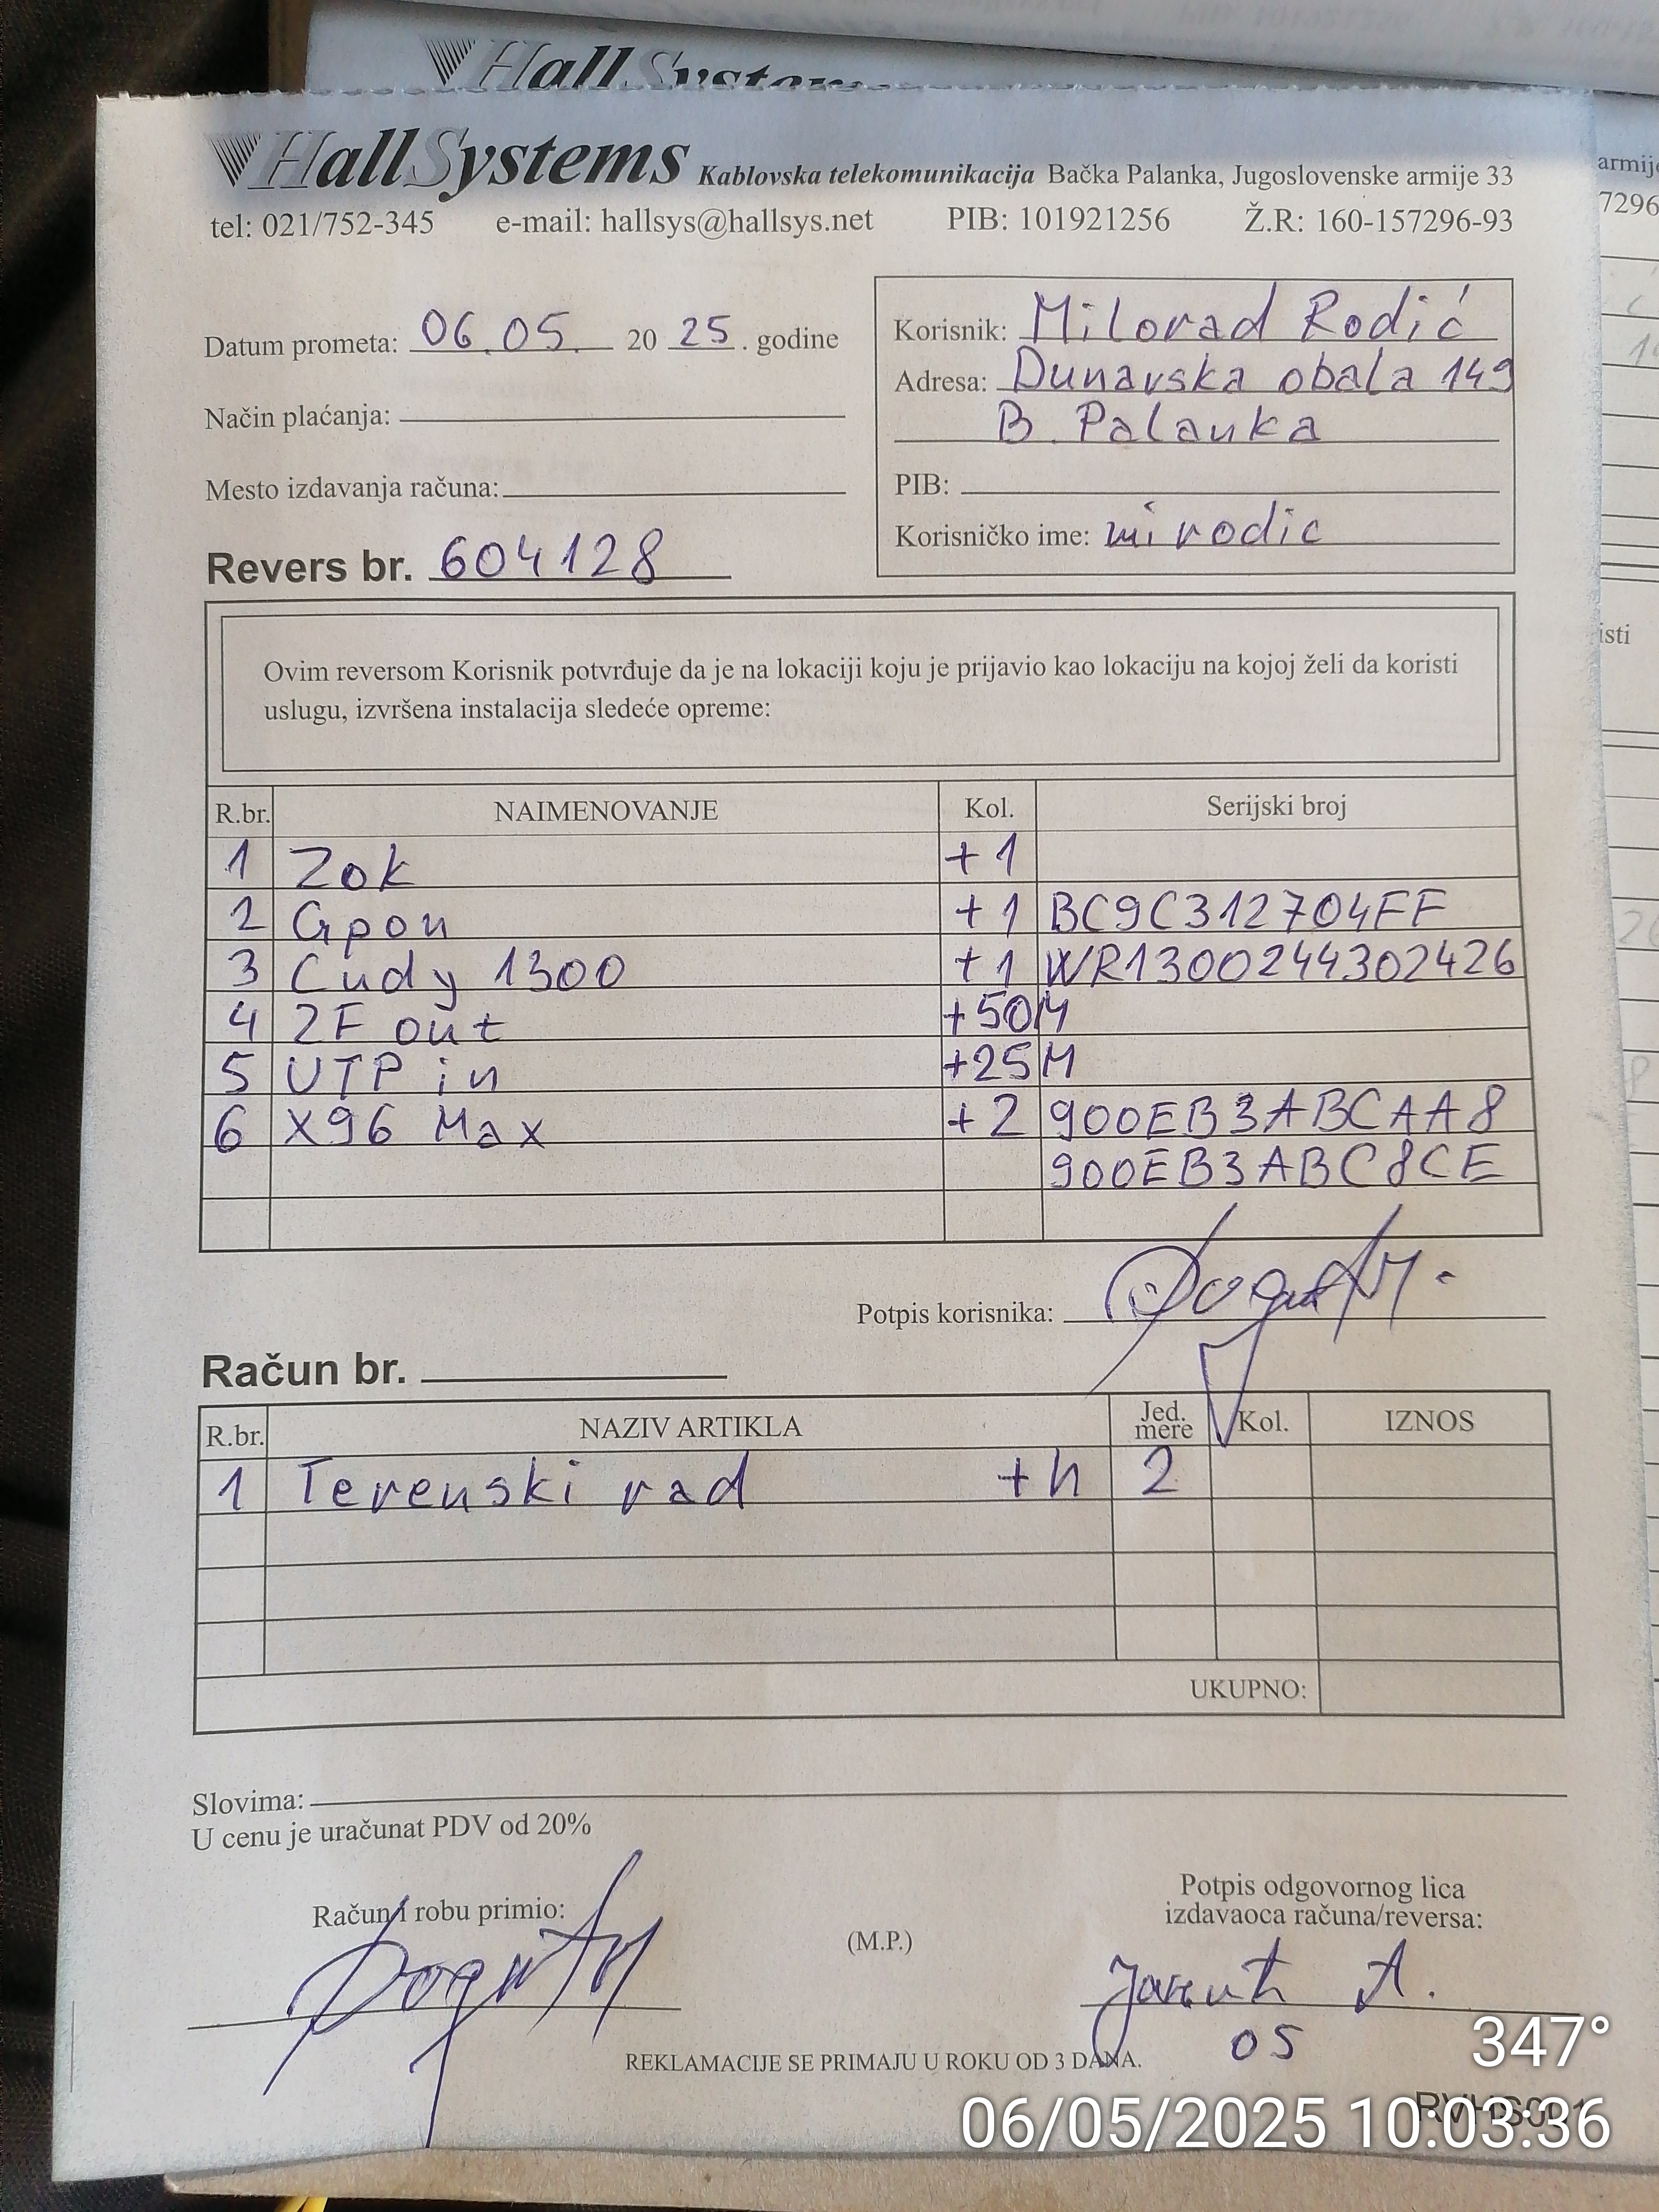 Hall Systems
HallSystems Kablovska telekomunikacija Bačka Palanka, Jugoslovenske armije 33
tel: 021/752-345 e-mail: hallsys@hallsys.net PIB: 101921256 Ž.R: 160-157296-93
armije
7296
Datum prometa: 06.05. 20 25. godine
Način plaćanja:
Mesto izdavanja računa:
Revers br. 604128
Korisnik: Milorad Rodić
Adresa: Dunavska obala 149
B. Palanka
PIB:
Korisničko ime: mirodic
isti
Ovim reversom Korisnik potvrđuje da je na lokaciji koju je prijavio kao lokaciju na kojoj želi da koristi
uslugu, izvršena instalacija sledeće opreme:
R.br. NAIMENOVANJE Kol. Serijski broj
1 Zok +1
2 Gpon +1 BC9C312704FF
3 Cudy 1300 +1 WR1300244302426
4 2F out +50M
5 UTP in +25M
6 X96 Max +2 900EB3ABCAA8
900EB3ABC8CE
Potpis korisnika:
Račun br.
R.br. NAZIV ARTIKLA Jed. mere Kol. IZNOS
1 Terenski rad +h 2
UKUPNO:
Slovima:
U cenu je uračunat PDV od 20%
Račun i robu primio:
(M.P.)
Potpis odgovornog lica
izdavaoca računa/reversa:
A.
05
REKLAMACIJE SE PRIMAJU U ROKU OD 3 DANA.
347°
06/05/2025 10:03:36